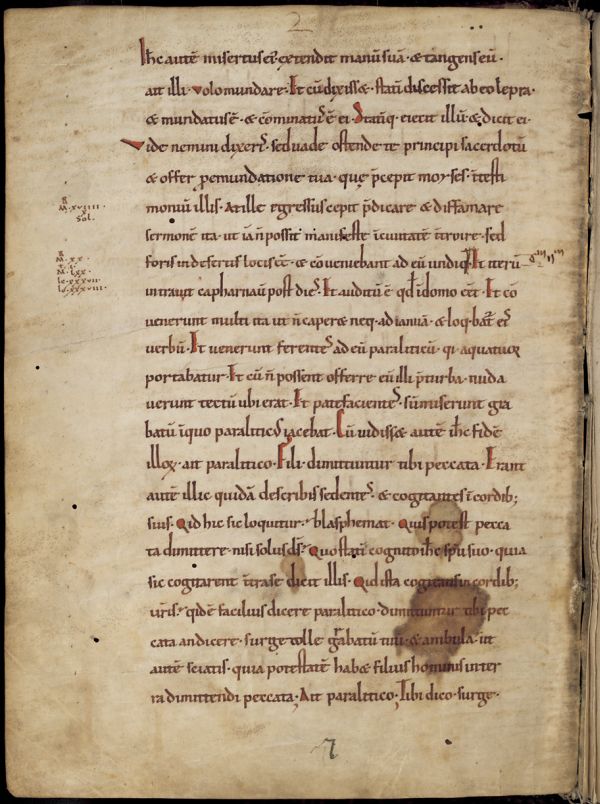 2
Ihc autē misertus eī extendit manū suā · & tangens eū ·
ait illi · volo mundare · Et cū dixiss& · statī discessit ab eo lepra ·
& mundatus ē · & cōminatus ē ei · Statimq; eiecit illū & dicit ei ·
Vide nemini dixeris · sed vade ostende te principi sacerdotū
& offer pro emundatione tua · que p̄cepit moyses · ītesti
moniū illis · At ille egressus cepit p̄dicare & diffamare
sermonē ita · ut iā n̄ possit manifeste īcivitatē ītroire · sed
foris indesertis locis ee͞t · & cōveniebant ad eū undiq; · Et iterū
intravit capharnaū post dies · Et auditū ē qd̄ īdomo ee͞t · Et cō
venerunt multi ita ut n̄ caper& neq; adianuā · & loq̄bat᷑ eis
verbū · Et venerunt ferentes ad eū paraliticū · qi aquatuoꝝ
portabatur · Et cū n̄ possent offerre eū illi p̄turba · nuda
verunt tectū ubi erat · Et patefacientes sūmiserunt gra
batū īquo paraliticus iacebat · Cū vidiss& autē ih̄c fidē
illoꝝ · ait paralitico · Fili · dimittuntur tibi peccata · Erant
autē illic quidā describis sedentes · & cogitantes ī cordib;
suis · Qid hic sic loquitur · blasphemat · Quis potest pecca
ta dimittere · nisi solus d̄s · Quo statī cognito ih̄c sp̄u suo · quia
sic cogitarent īt̄rase dicit illis · Qid ista cogitatis in cordib;
vr̄is · qid ē facilius dicere paralitico · dimittuntur tibi pec
cata · an dicere · surge tolle grabatū tuū · & ambula · ut
autē sciatis · quia potestatē hab& filius hominis inter
ra dimittendi peccata ; Ait paralitico ; Tibi dico · surge ·
M · xviiii ·
M · xx ·
M · lxx ·
lc · xxxvii ·
7